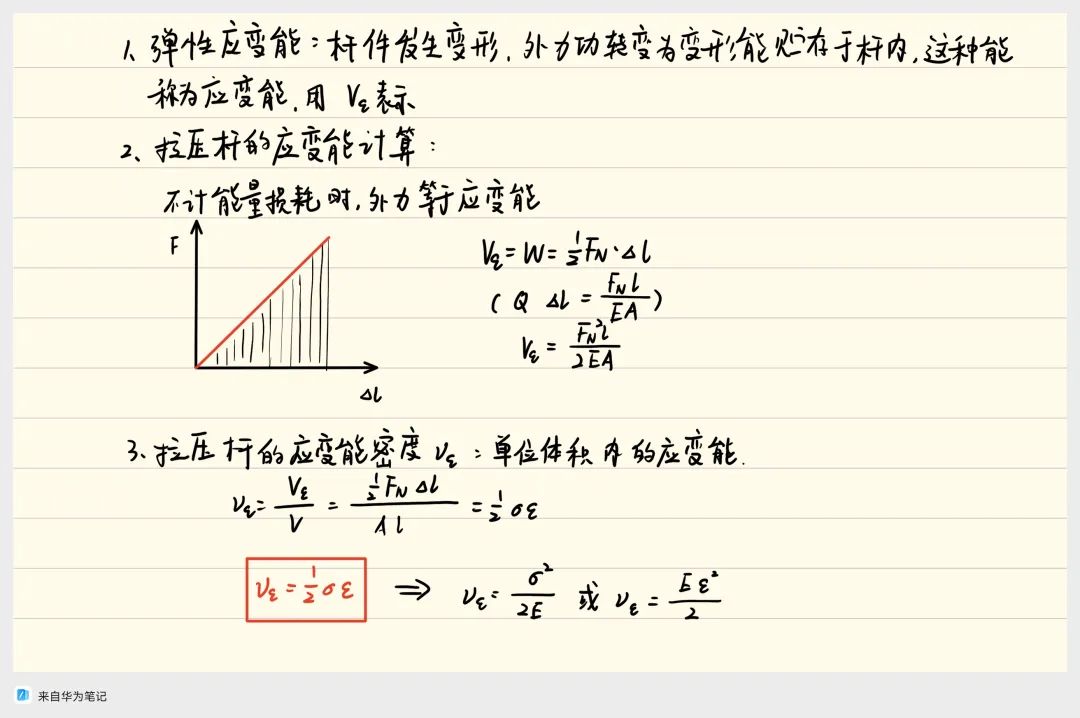 1、弹性应变能：杆件发生变形，外力功转变为变形能贮存于杆内，这种能
称为应变能，用 Vε表示
2、拉压杆的应变能计算：
不计能量损耗时，外力等于应变能
F
Δl
Vε = W = 1/2 FN·Δl
( Q Δl = FN l / EA )
Vε = FN² l / 2EA
3、拉压杆的应变能密度 νε：单位体积内的应变能.
νε = Vε / V = 1/2 FN Δl / A l = 1/2 σε
νε = 1/2 σε ⇒ νε = σ² / 2E 或 νε = E ε² / 2
来自华为笔记